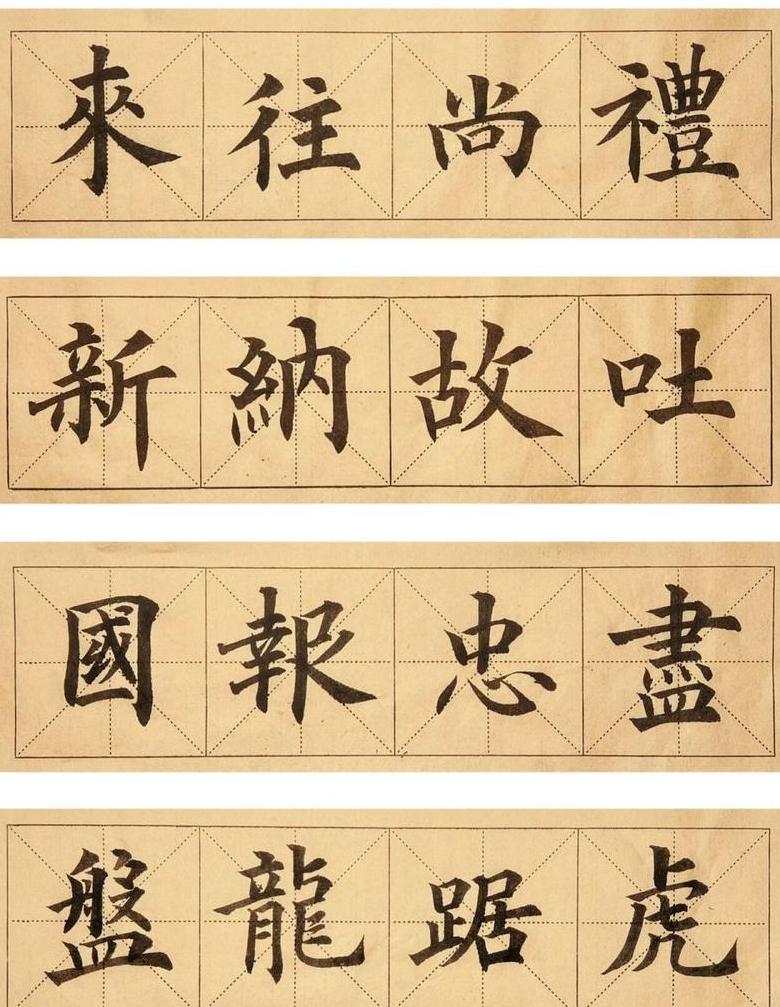 禮尚往來
吐故納新
盡忠報國
虎踞龍盤